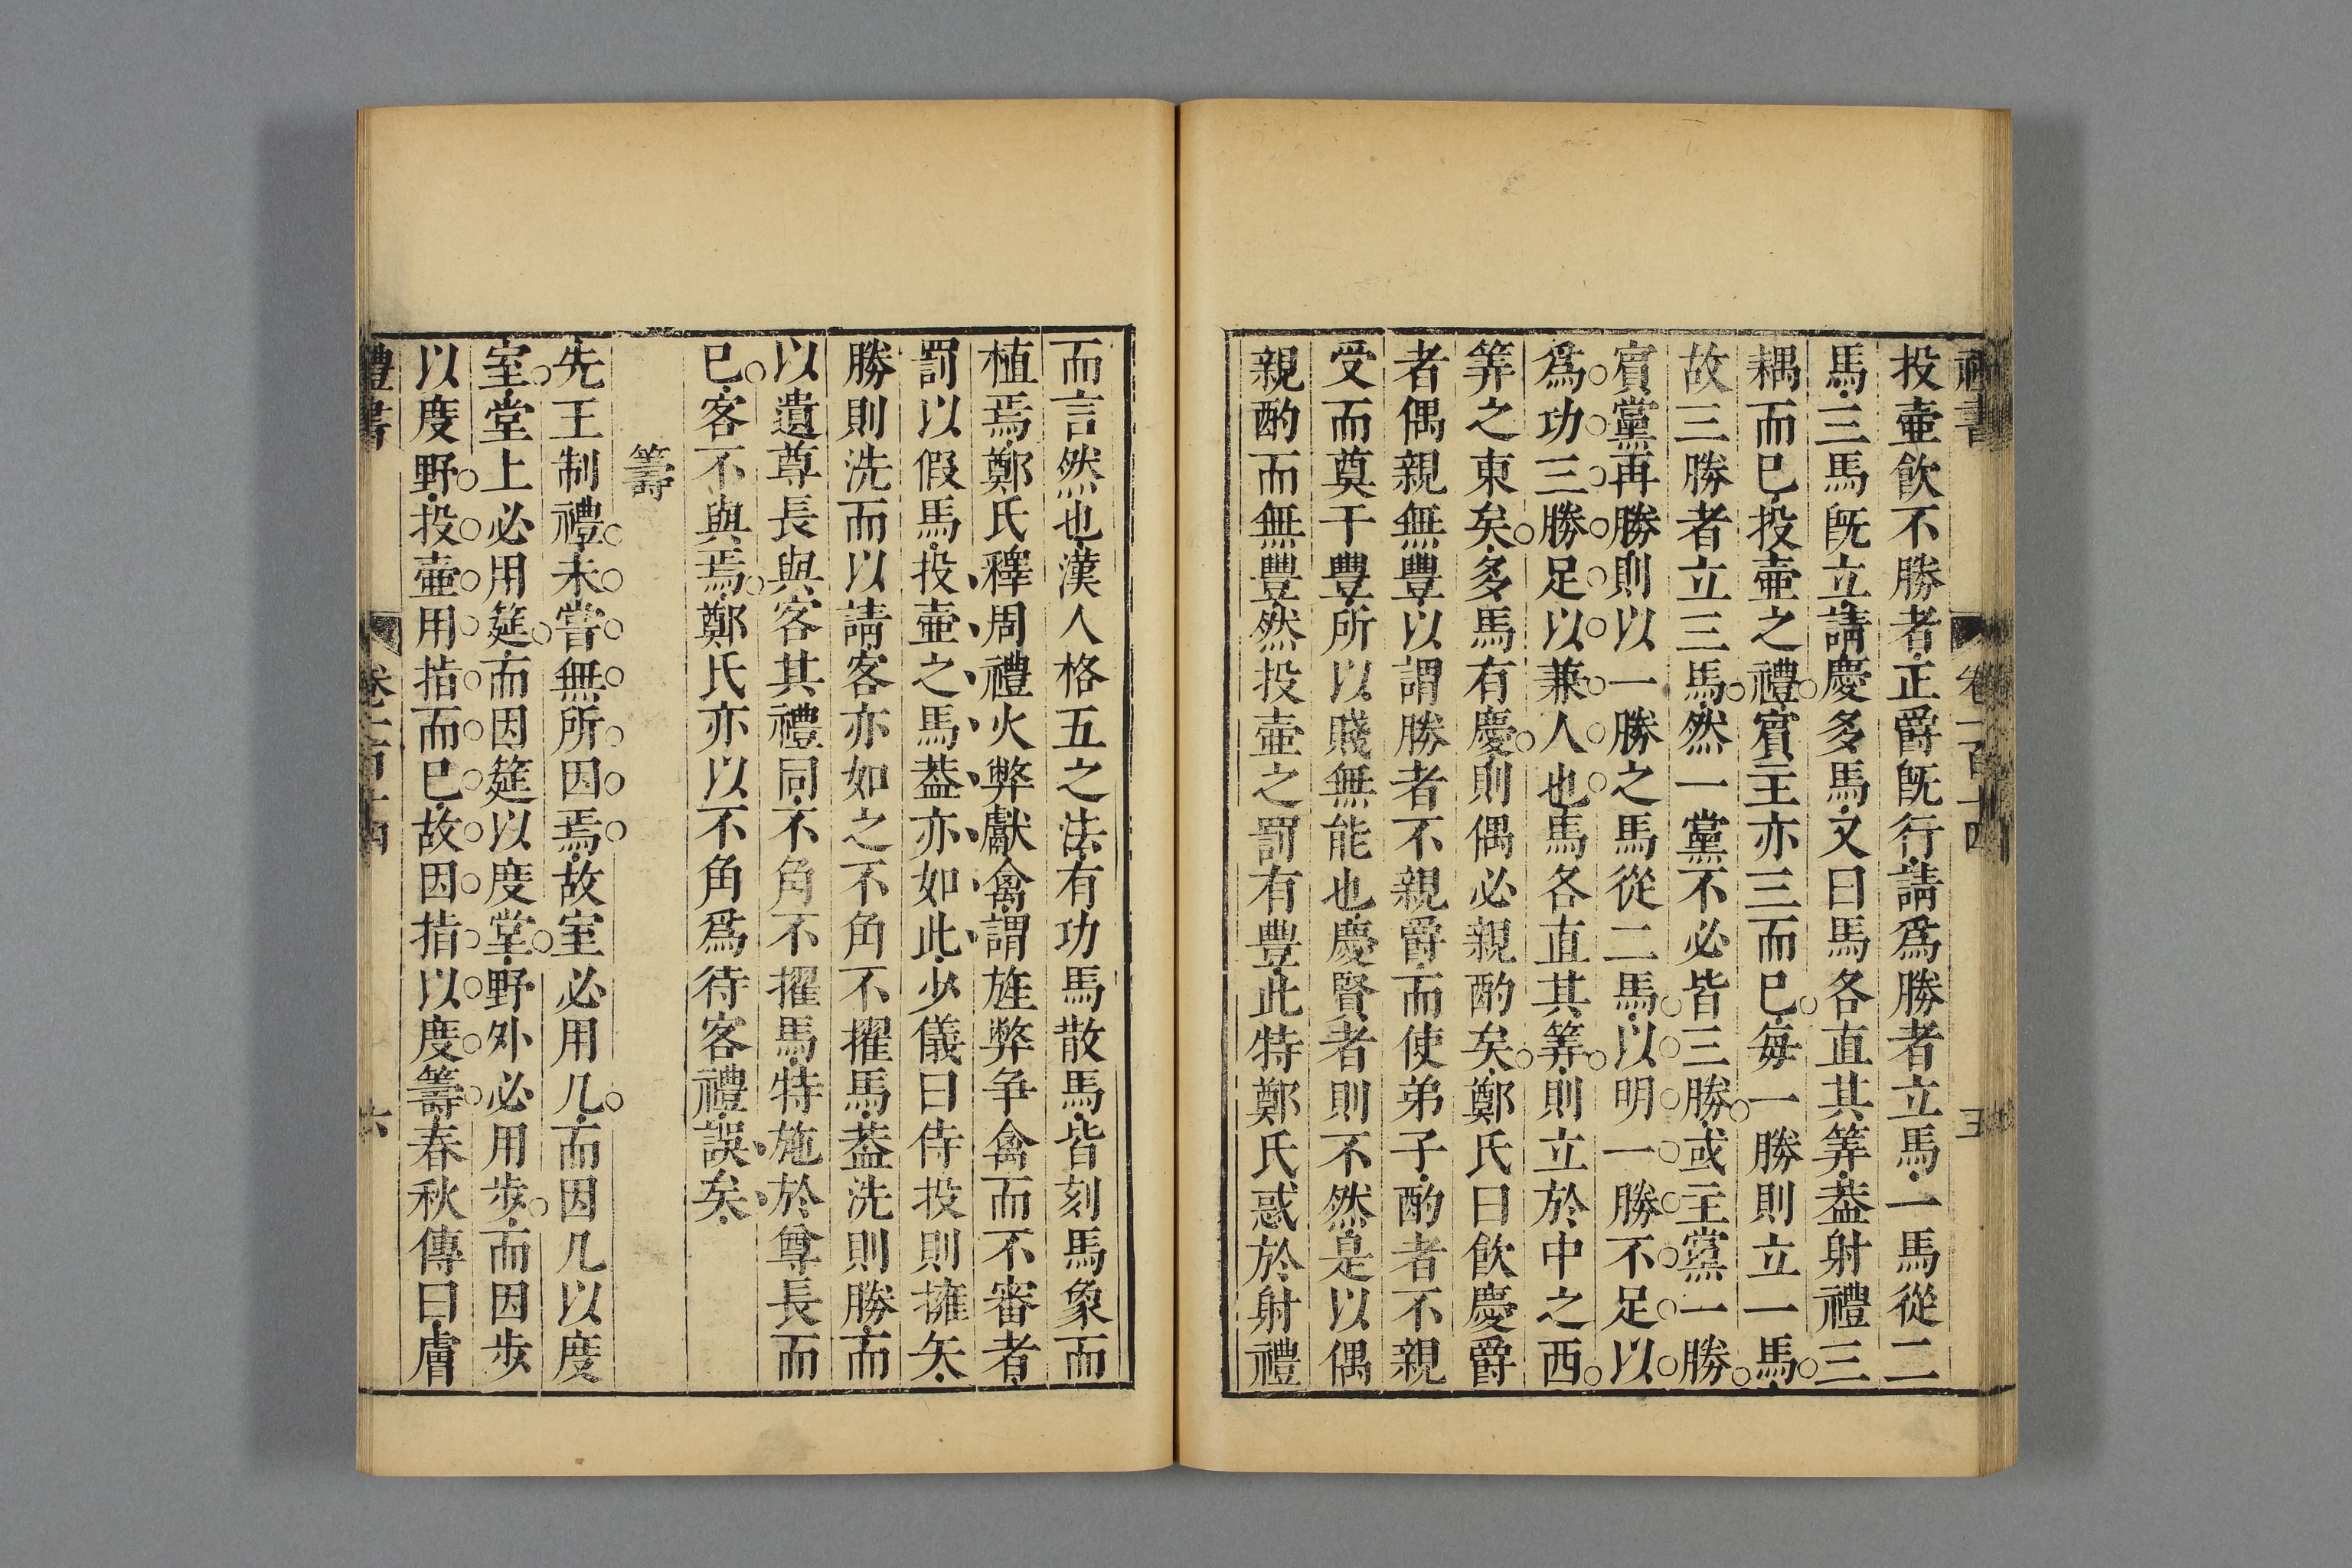 禮書 卷一百十四 五
投壷飲不勝者正爵旣行請爲勝者立馬一馬從二
馬三馬旣立請慶多馬又曰馬各直其筭葢射禮三
耦而巳投壷之禮賓主亦三而巳每一勝則立一馬
故三勝者立三馬然一黨不必皆三勝或主黨一勝
賓黨再勝則以一勝之馬從二馬以明一勝不足以
爲功三勝足以兼人也馬各直其筭則立於中之西
筭之東矣多馬有慶則偶必親酌矣鄭氏曰飲慶爵
者偶親無豐以謂勝者不親爵而使弟子酌者不親
受而奠于豐所以賤無能也慶賢者則不然是以偶
親酌而無豐然投壷之罰有豐此特鄭氏惑於射禮
而言然也漢人格五之法有功馬散馬皆刻馬象而
植焉鄭氏釋周禮火弊獻禽謂旌弊争禽而不審者
罰以假馬投壷之馬葢亦如此少儀曰侍投則擁矢
勝則洗而以請客亦如之不角不擢馬葢洗則勝而
以遺尊長與客其禮同不角不擢馬特施於尊長而
巳客不與焉鄭氏亦以不角爲待客禮誤矣
籌
先王制禮未嘗無所因焉故室必用几而因几以度
室堂上必用筵而因筵以度堂野外必用步而因步
以度野投壷用指而巳故因指以度籌春秋傳曰膚
禮書 卷一百十四 六